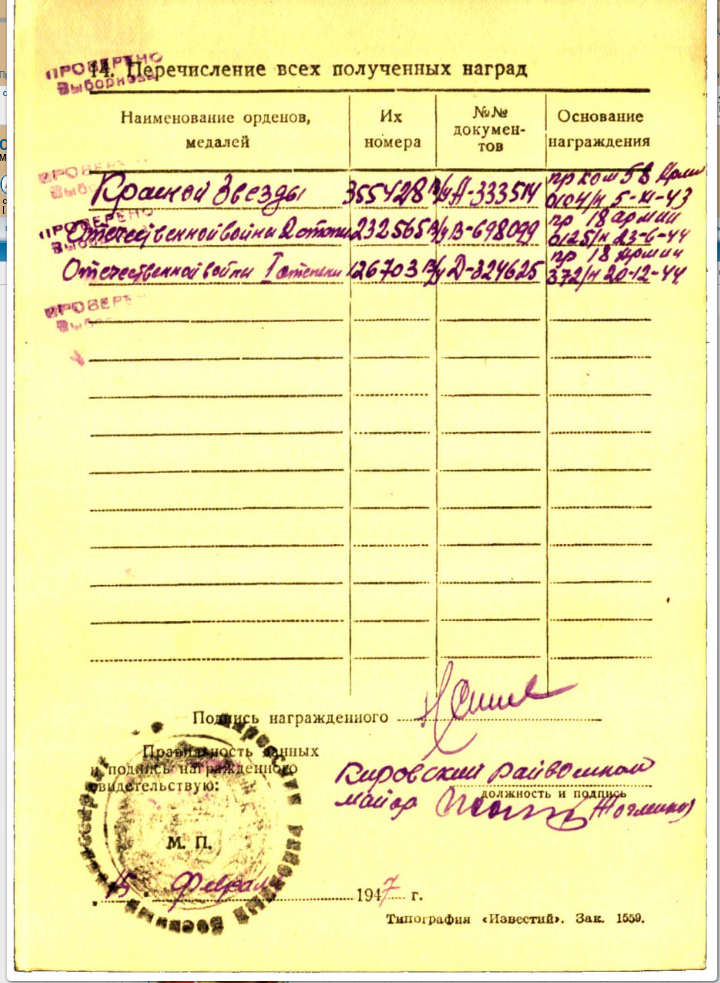 ПРОВЕРЕНО
14. Перечисление всех полученных наград
Наименование орденов, медалей
Их номера
№№ документов
Основание награждения
ПРОВЕРЕНО
Красной Звезды 355428 В/у А-333514 пр ком 58 Арми
0104/н 5-XI-43
ПРОВЕРЕНО
Отечественной войны 2 степени 232565 В/у В-698099 пр 18 армии
0125/н 23-6-44
Отечественной войны I степени 126703 В/у Д-324625 пр 18 Армии
372/н 20-12-44
ПРОВЕРЕ
Подпись награжденного
Правильность данных
и подпись награжденного
свидетельствую:
Кировский райвоенком
майор
должность и подпись
М. П.
15 Февраля 1947 г.
Типография «Известий». Зак. 1559.